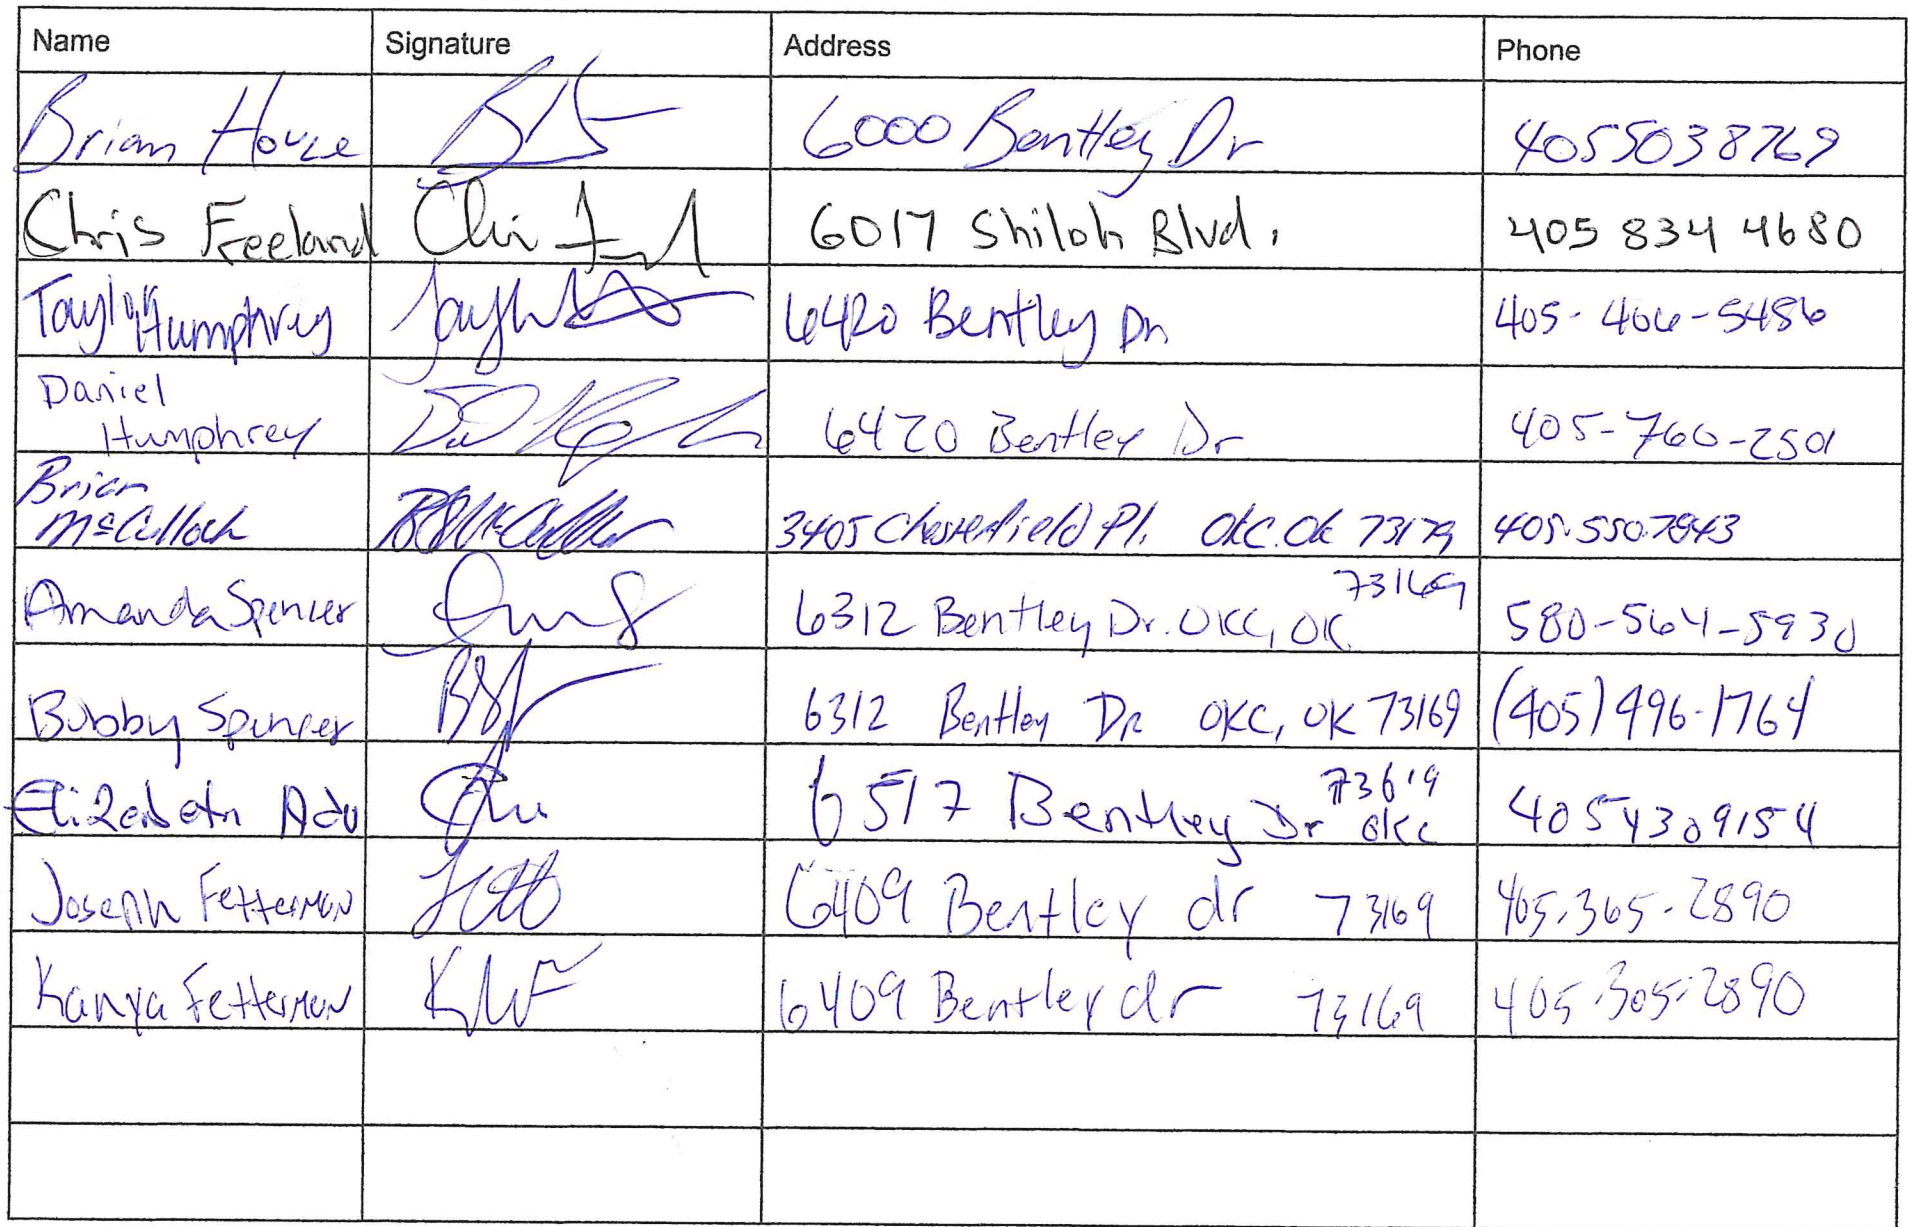 Name Signature Address Phone
Brian House 6000 Bentley Dr 4055038769
Chris Freeland 6017 Shiloh Blvd. 405 834 4680
Taylor Humphrey 6420 Bentley Dr 405-406-5486
Daniel
Humphrey 6420 Bentley Dr 405-760-2501
Brian
McCulloch 3405 Chesterfield Pl. OKC. OK 73179 405.550.7843
Amanda Spencer 6312 Bentley Dr. OKC, OK 73169 580-564-5930
Bobby Spencer 6312 Bentley Dr OKC, OK 73169 (405) 496-1764
Elizabeth Adu 6517 Bentley Dr 73619 OKC 4054309154
Joseph Fetterman 6409 Bentley dr 73169 405-365-2890
Kanya Fetterman 6409 Bentley dr 73169 405-305-2890